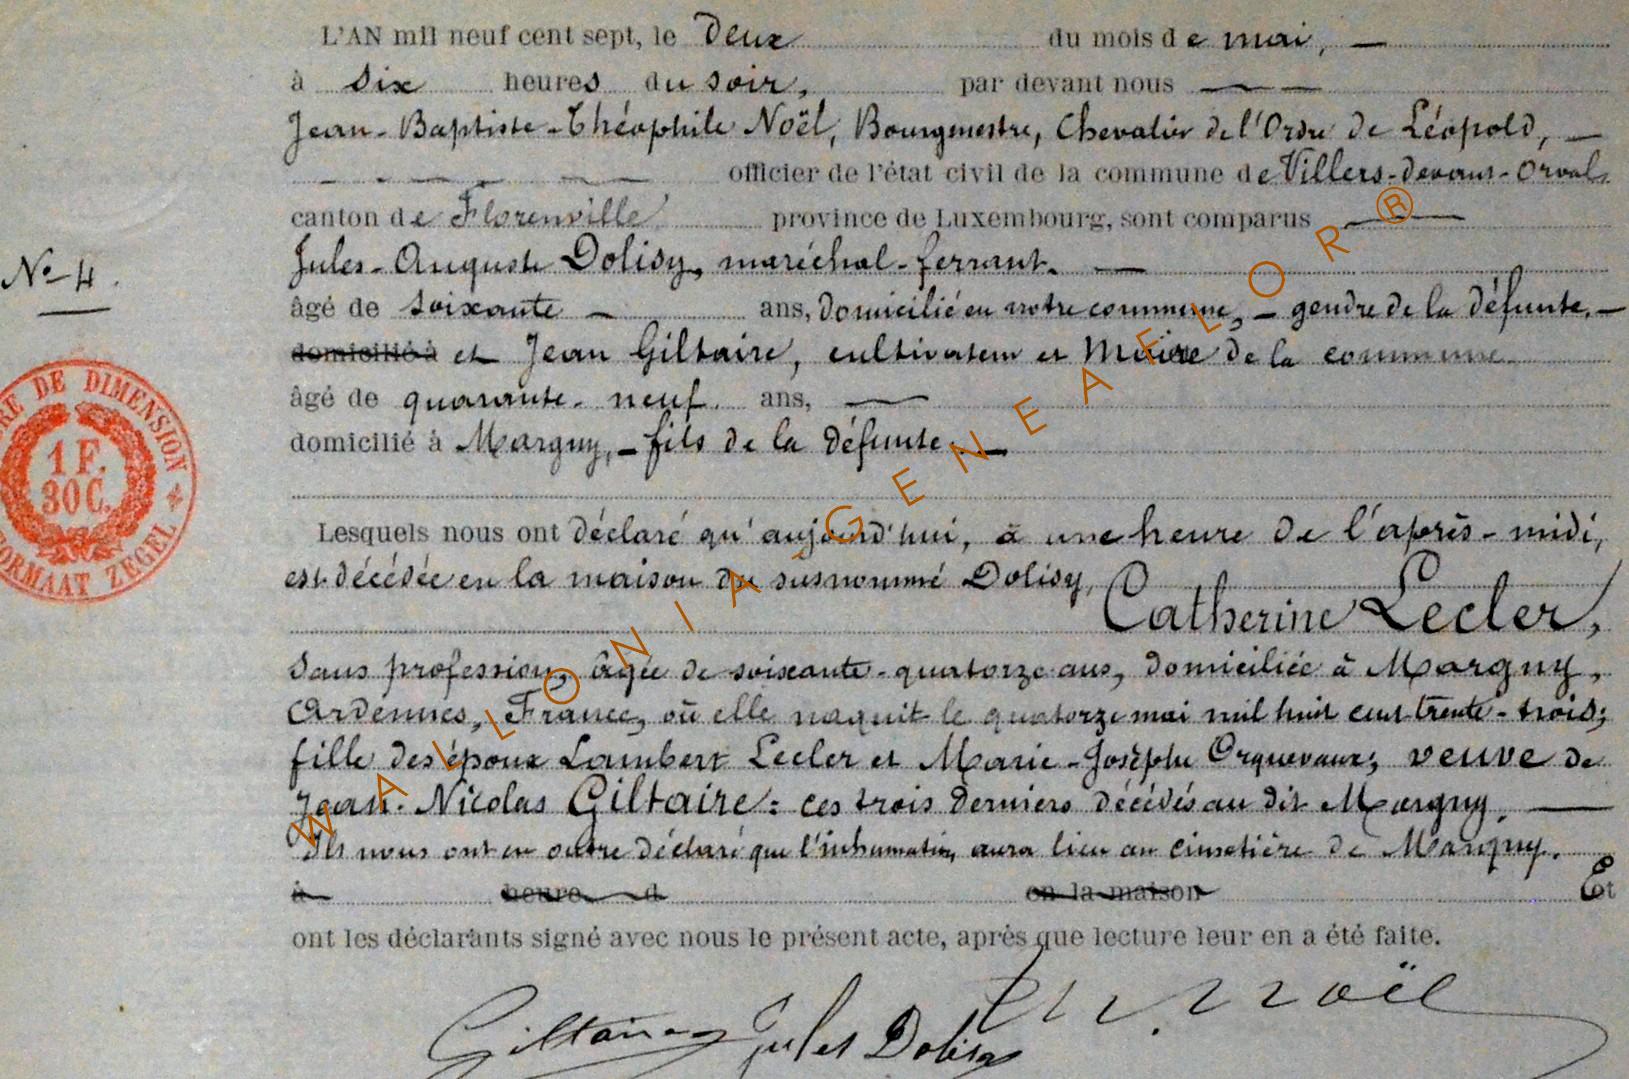 L'AN mil neuf cent sept, le Deux du mois de mai,
à six heures du soir, par devant nous
Jean-Baptiste-Théophile Noël, Bourgmestre, Chevalier de l'Ordre de Léopold,
officier de l'état civil de la commune de Villers-devant-Orval,
canton de Florenville province de Luxembourg, sont comparus
Jules-Auguste Dolisy, maréchal-ferrant.
N° 4.
âgé de soixante ans, domicilié en notre commune, gendre de la défunte.
domicilié à et Jean Giltaire, cultivateur et Maire de la commune
âgé de quarante-neuf ans,
domicilié à Margny, fils de la défunte.
TIMBRE DE DIMENSION
1 F. 30 C.
FORMAAT ZEGEL
Lesquels nous ont déclaré qu'aujourd'hui, à une heure de l'après-midi,
est décédée en la maison du susnommé Dolisy,
Catherine Lecler,
sans profession, âgée de soixante-quatorze ans, domiciliée à Margny,
Ardennes, France, où elle naquit le quatorze mai mil huit cent trente-trois;
fille des époux Lambert Lecler et Marie-Josèphe Orquevaux; veuve de
Jean-Nicolas Giltaire: ces trois derniers décédés au dit Margny.
Ils nous ont en outre déclaré que l'inhumation aura lieu au cimetière de Margny.
à heure d en la maison Et
ont les déclarants signé avec nous le présent acte, après que lecture leur en a été faite.
Giltaire Jules Dolisy Th. Noël
WALLONIA-GENEAFLOR®